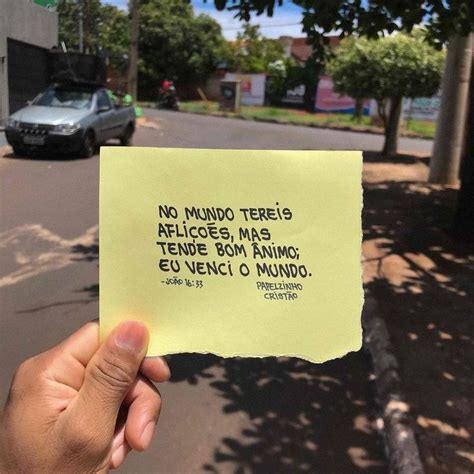 NO MUNDO TEREIS
AFLIÇOÉS, MAS
TENDE BOM ÂNIMO;
EU VENCI O MUNDO.
-JOÃO 16:33
PAPELZINHO
CRISTÃO